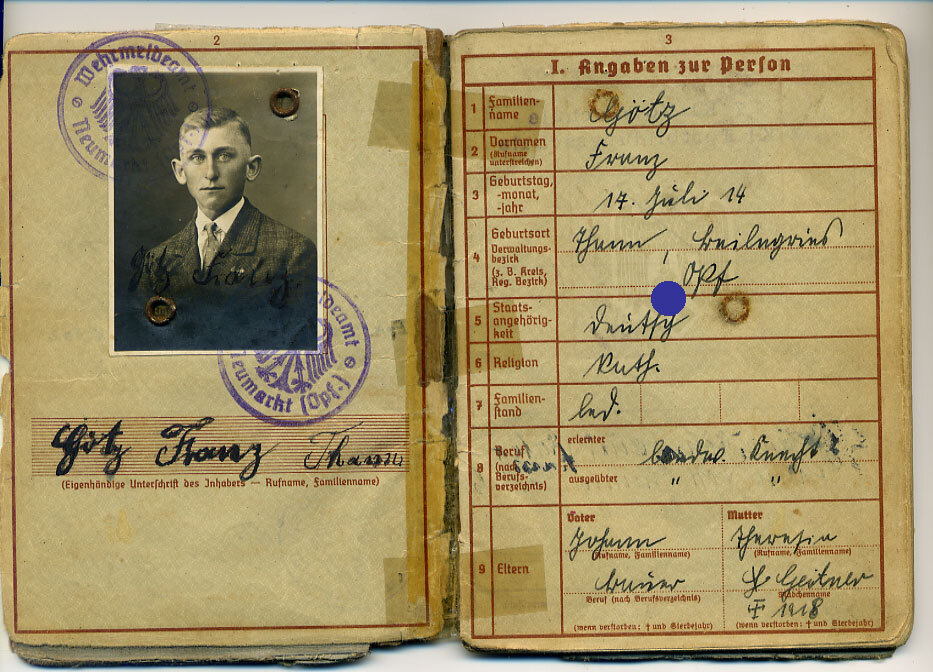 2
Wehrmeldeamt
Neumarkt
Götz Franz
Wehrmeldeamt
Neumarkt (Opf.)
Götz Franz Thann
(Eigenhändige Unterschrift des Inhabers — Rufname, Familienname)
3
I. Angaben zur Person
1 Familien-
name
Götz
2 Vornamen
(Rufname
unterstreichen)
Franz
3 Geburtstag,
-monat,
-jahr
17. Juli 14
4 Geburtsort
Verwaltungs-
bezirk
(z. B. Kreis,
Reg. Bezirk)
Thann, Beilngries
Opf
5 Staats-
angehörig-
keit
deutsch
6 Religion
kath.
7 Familien-
stand
led.
8 Beruf
(nach
Berufs-
verzeichnis)
erlernter
Knecht
ausgeübter
" "
9 Eltern
Vater
Johann
(Rufname, Familienname)
Bauer
Beruf (nach Berufsverzeichnis)
(wenn verstorben: † und Sterbejahr)
Mutter
Theresia
(Rufname, Familienname)
Geitner
Mädchenname
† 1918
(wenn verstorben: † und Sterbejahr)